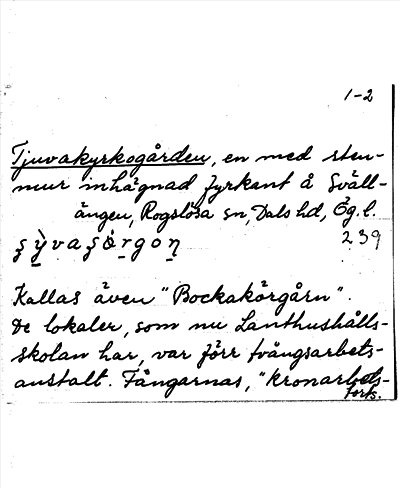 1-2
Tjuvakyrkogården, en med sten-
mur inhägnad fyrkant å Sväll-
ängen, Rogslösa sn, Dals hd, Ög.l.
239
Kallas även "Bockakörgårn".
De lokaler, som nu Lanthushålls-
skolan har, var förr tvångsarbets-
anstalt. Fångarnas, "kronarbets-
forts.